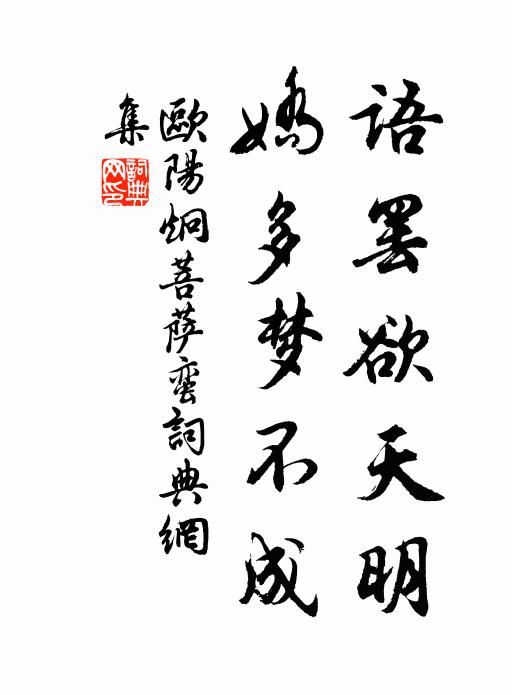 語罷欲天明
嬌多梦不成
歐陽炯菩薩蠻詞典網
集
詞典
网印